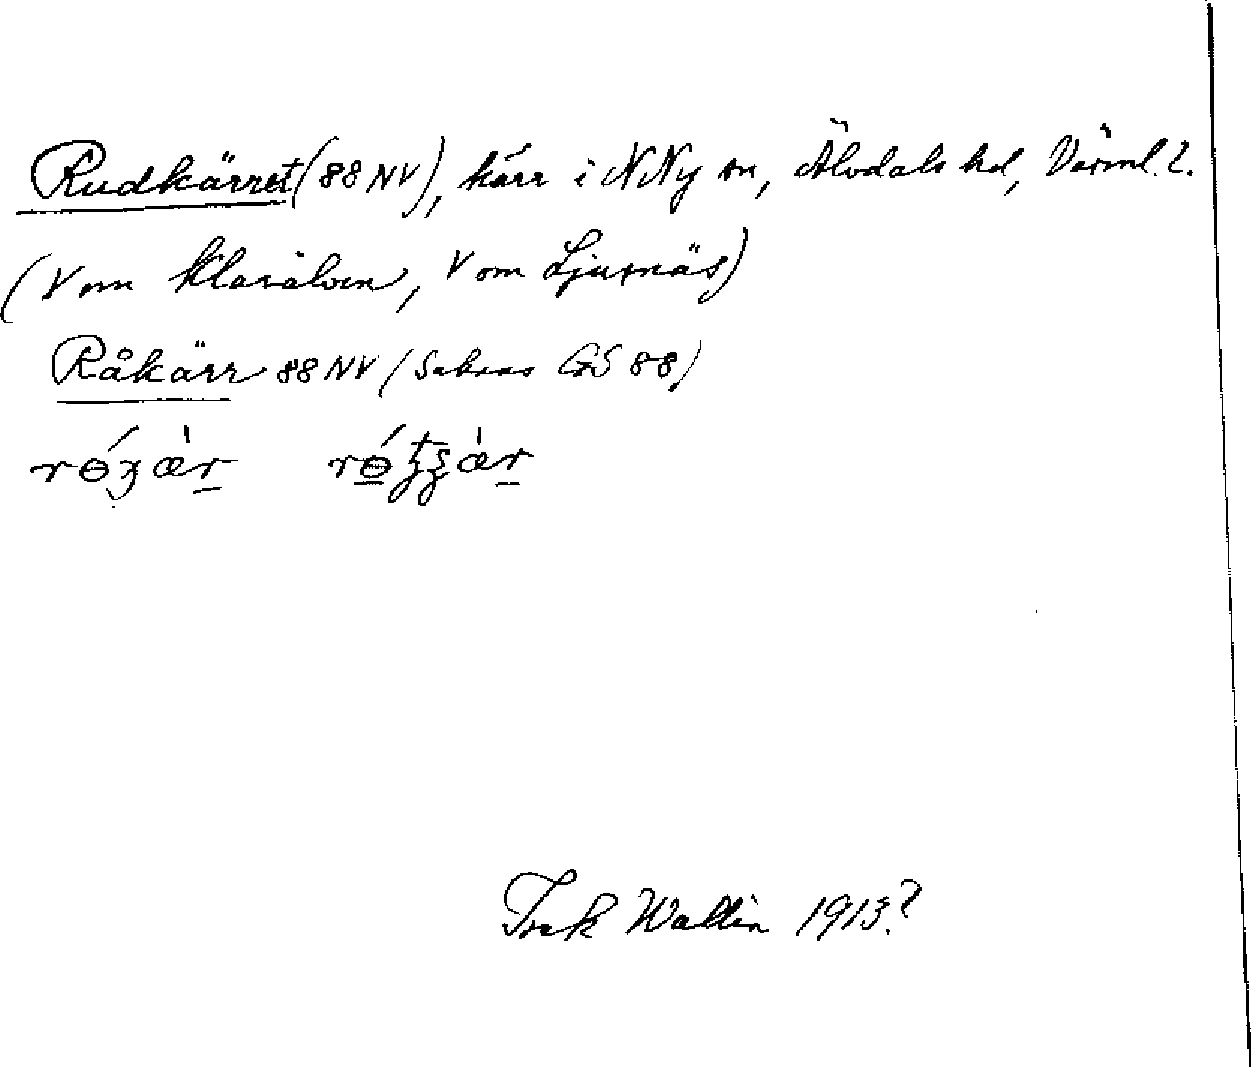 Rudkärret (88 NV), kärr i N Ny sn, Älvdals hd, Värml. l.
(V om Klarälven, V om Ljusnäs)
Råkärr 88 NV (Saknas GS 88)
Isak Wallin 1913?